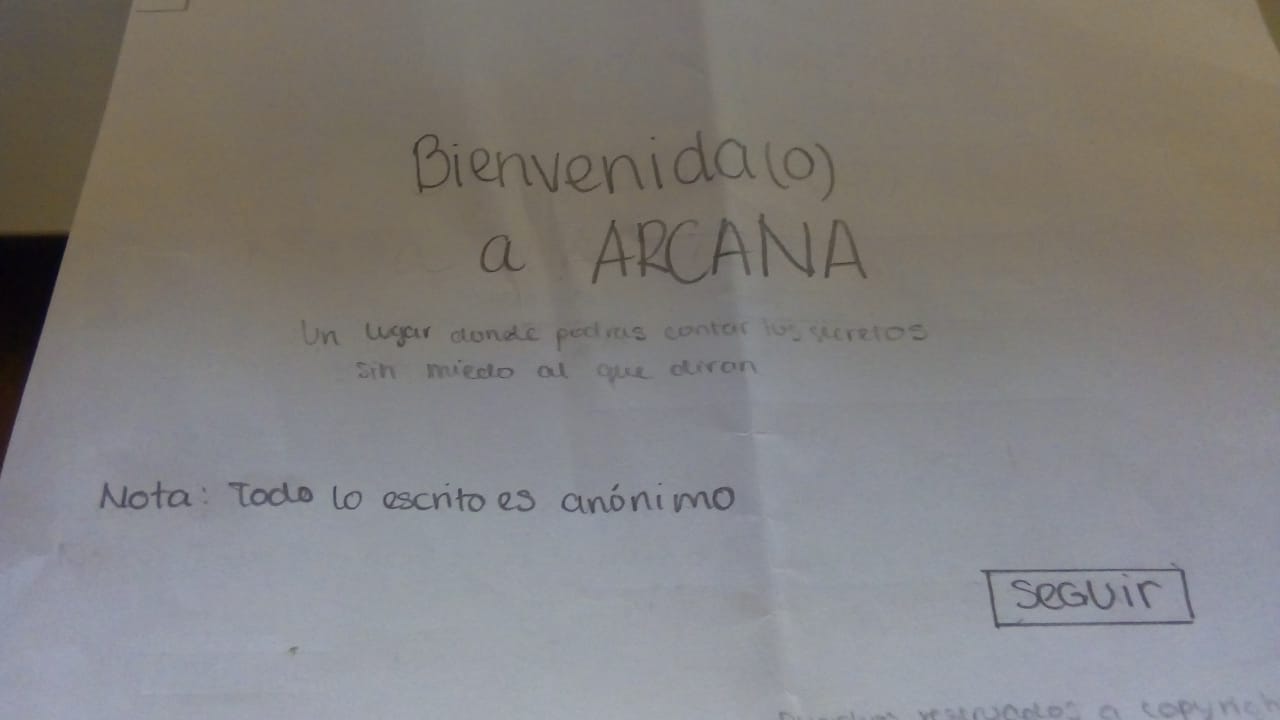 Bienvenida(o)
a ARCANA
Un lugar donde podras contar tus secretos
sin miedo al que diran
Nota: Todo lo escrito es anónimo
seguir
reservados a copyrigh